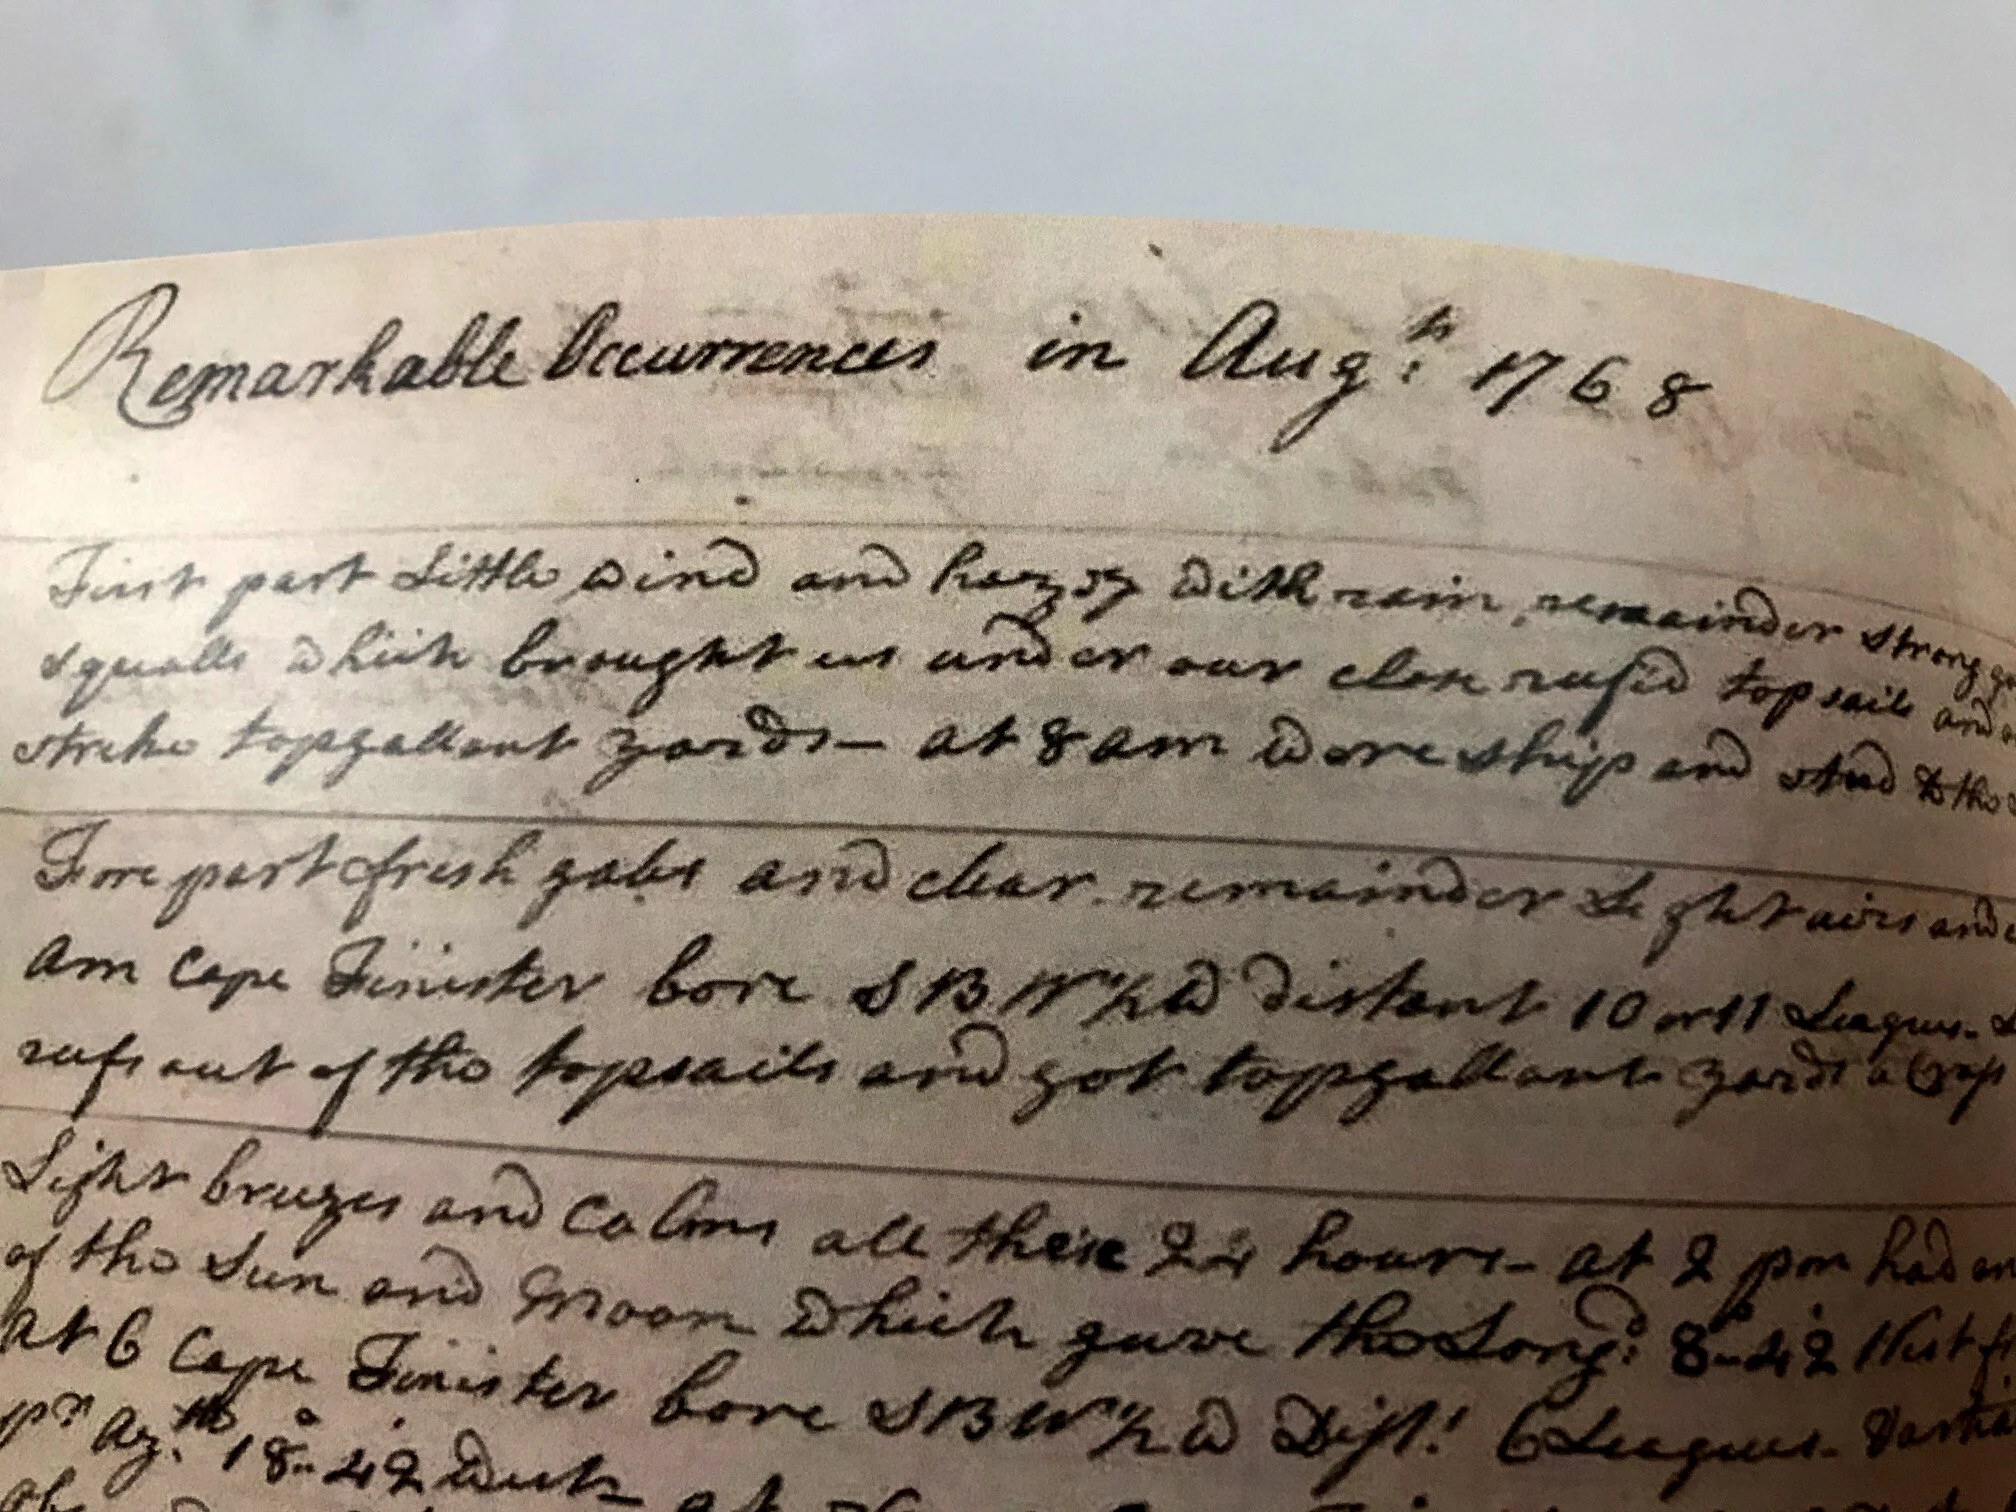 Remarkable Occurrences in Aug:st 1768
First part Little wind and hazey with rain, remainder strong
squalls which brought us under our close reefd topsails and
streke topgallant yards— at 8 am wore ship and stud to the
Fore part fresh gales and clear remainder Light airs and
am Cape Finister bore SBW½W distant 10 or 11 Leagues.
reefs out of the topsails and got topgallant yards a Cross
Light breezes and Calms all these 24 hours— at 2 pm had
of the Sun and Moon which gave the Longd: 8°..42' West
at 6 Cape Finister bore SBW½W Dist.t 6 Leagues.
pr Az:th 18°..42' West— at